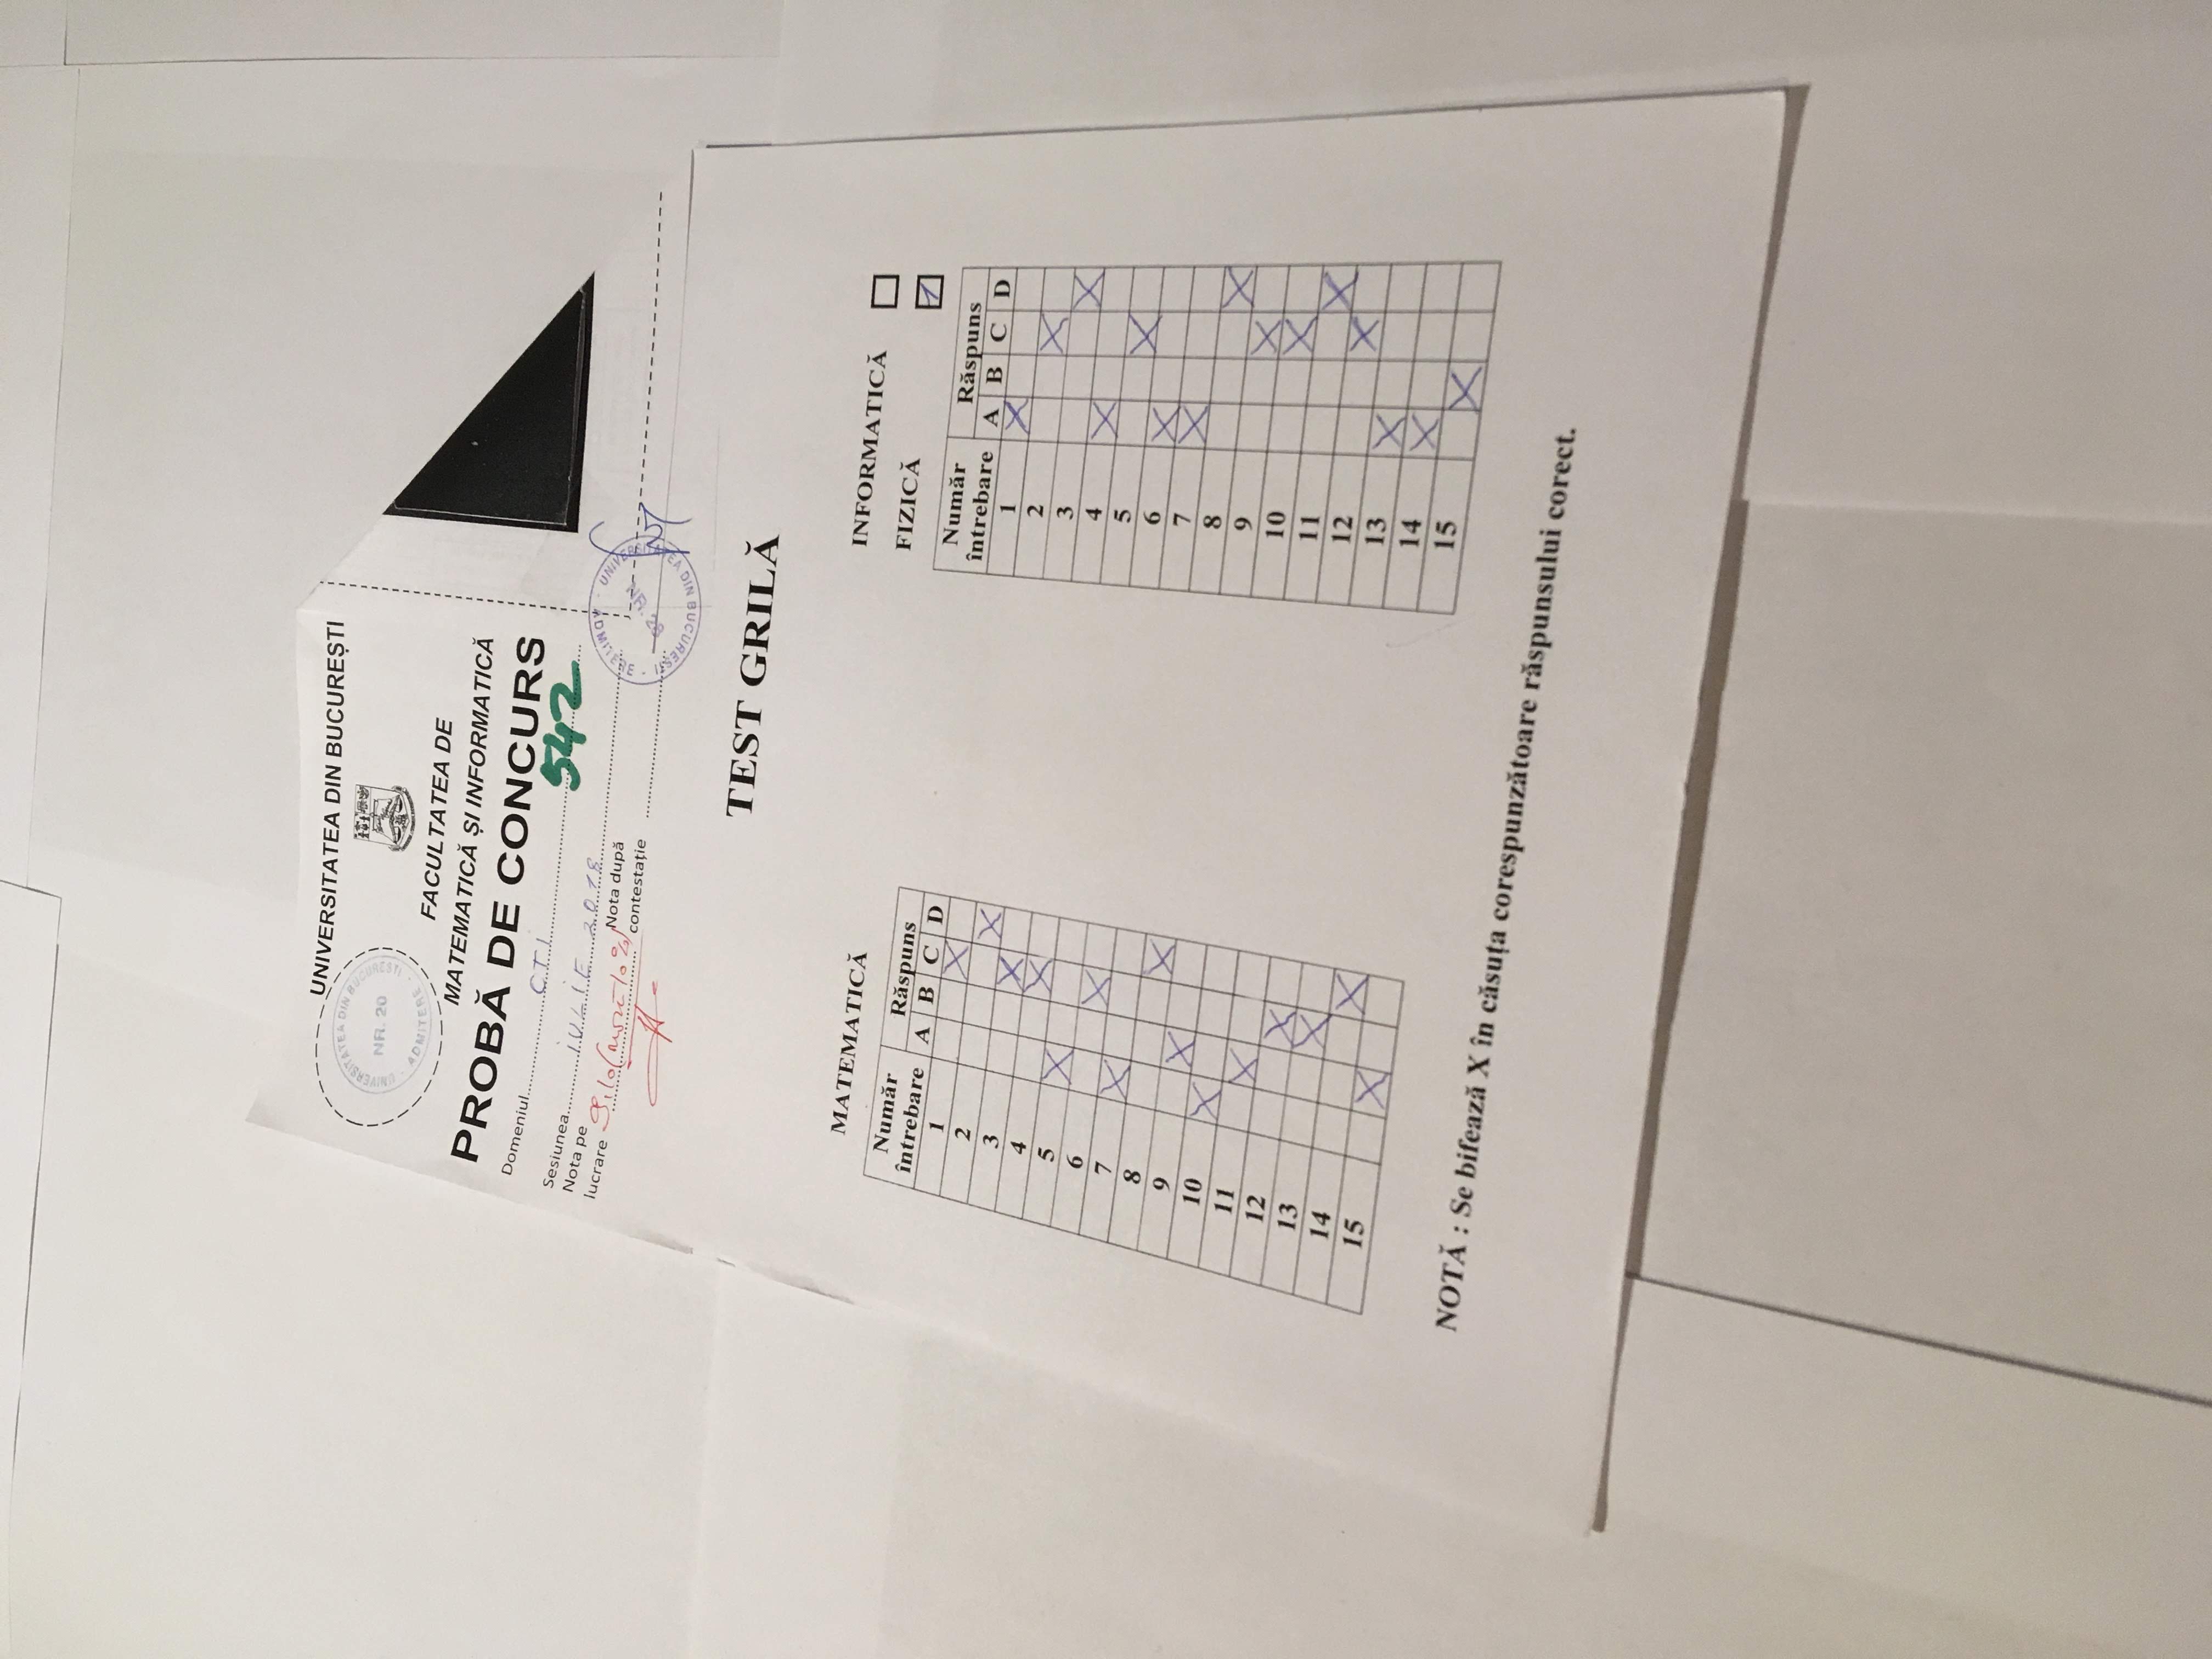 UNIVERSITATEA DIN BUCUREȘTI
UNIVERSITATEA DIN BUCUREȘTI
NR. 20
ADMITERE
FACULTATEA DE
MATEMATICĂ ȘI INFORMATICĂ
PROBĂ DE CONCURS
Domeniul CTI
542
Sesiunea IULIE 2018
Nota pe lucrare 9,10
Nota după contestație
UNIVERSITATEA DIN BUCUREȘTI
NR. 28
ADMITERE
TEST GRILĂ
MATEMATICĂ
Număr întrebare Răspuns
A B C D
1 X
2 X
3 X
4 X
5 X
6 X
7 X
8 X
9 X
10 X
11 X
12 X
13 X
14 X
15 X
INFORMATICĂ
FIZICĂ 1
Număr întrebare Răspuns
A B C D
1 X
2 X
3 X
4 X
5 X
6 X
7 X
8 X
9 X
10 X
11 X
12 X
13 X
14 X
15 X
NOTĂ : Se bifează X în căsuța corespunzătoare răspunsului corect.